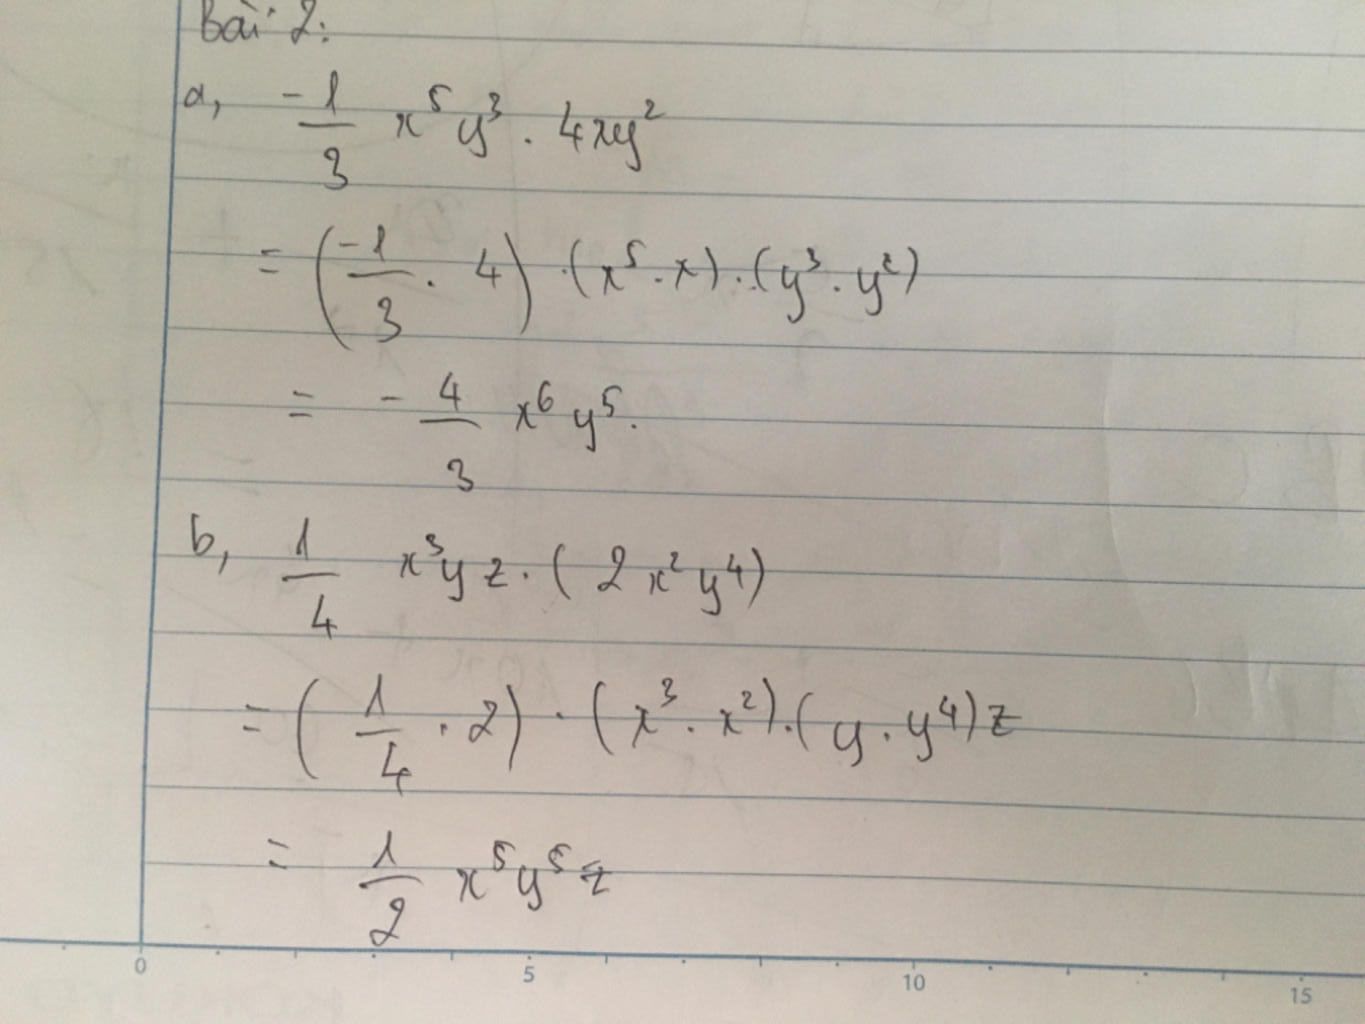 Bài 2:
a, -1/3 x⁵y³ . 4xy²
= (-1/3 . 4) . (x⁵ . x) . (y³ . y²)
= - 4/3 x⁶y⁵.
b, 1/4 x³yz . (2x²y⁴)
= (1/4 . 2) . (x³ . x²) . (y . y⁴)z
= 1/2 x⁵y⁵z
0 5 10 15